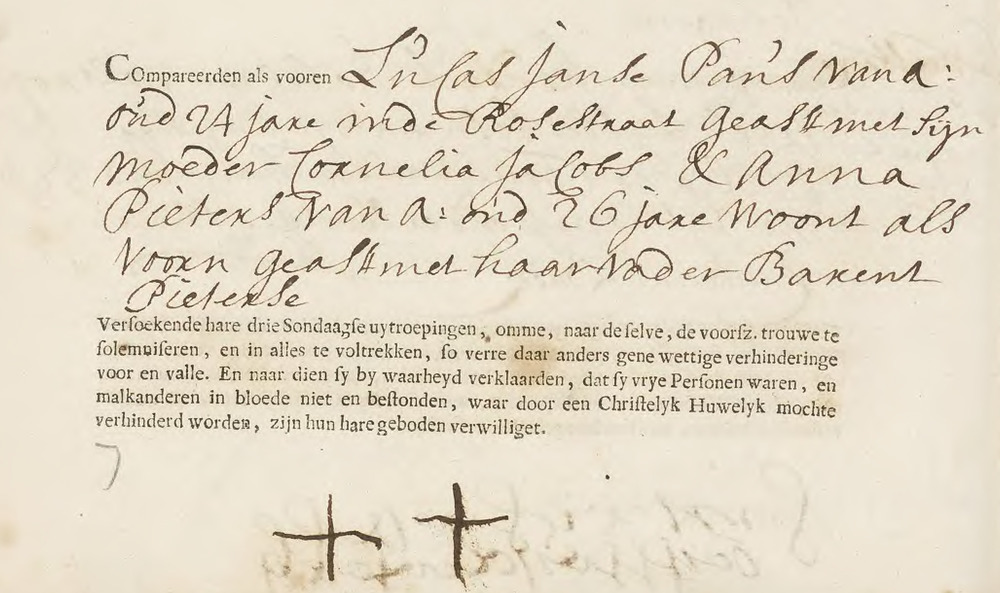 COmpareerden als vooren Lucas Janse Paús van A:
oúd 24 jare inde Rosestraat geasst met Sijn
moeder Cornelia Jacobs & Anna
Pieters van A: oúd 26 jare woont als
voorn geasst met haar vader Barent
Pieterse
Verſoekende hare drie Sondaagſe uytroepingen, omme, naar de ſelve, de voorſz. trouwe te
ſolemniſeren, en in alles te voltrekken, ſo verre daar anders gene wettige verhinderinge
voor en valle. En naar dien ſy by waarheyd verklaarden, dat ſy vrye Perſonen waren, en
malkanderen in bloede niet en beſtonden, waar door een Chriſtelyk Huwelyk mochte
verhinderd worden, zijn hun hare geboden verwilliget.